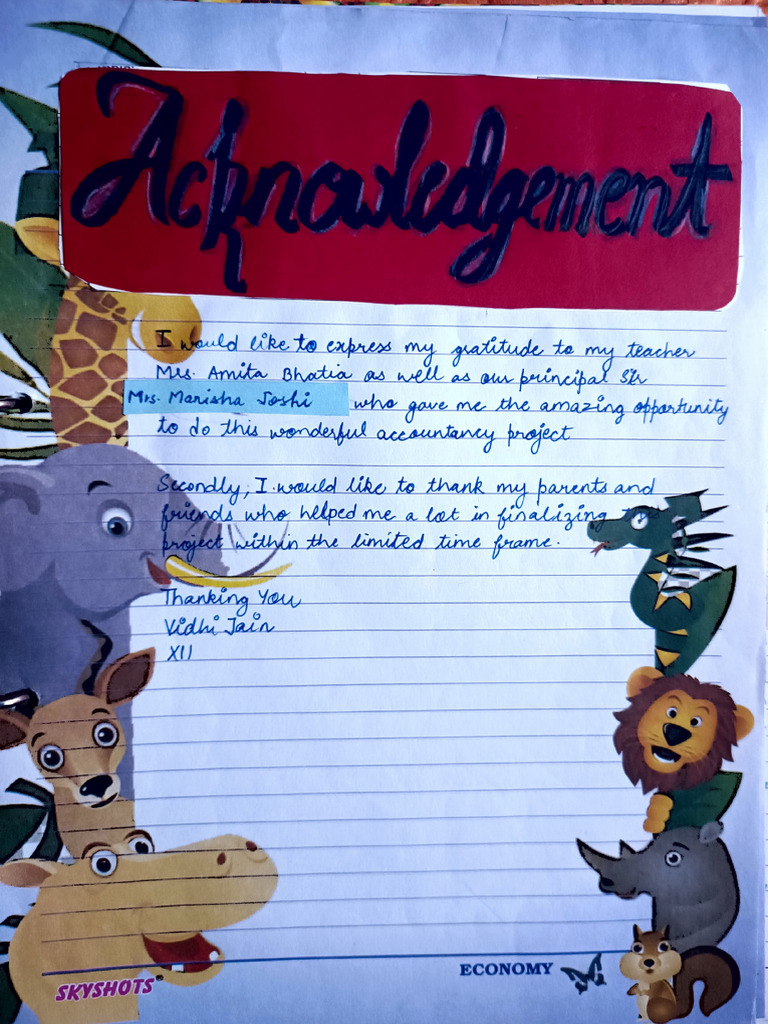 Acknowledgement
I would like to express my gratitude to my teacher
Mrs. Amita Bhatia as well as our principal Sir
Mrs. Manisha Joshi who gave me the amazing opportunity
to do this wonderful accountancy project
Secondly, I would like to thank my parents and
friends who helped me a lot in finalizing this
project within the limited time frame.
Thanking You
Vidhi Jain
XII
ECONOMY
SKYSHOTS